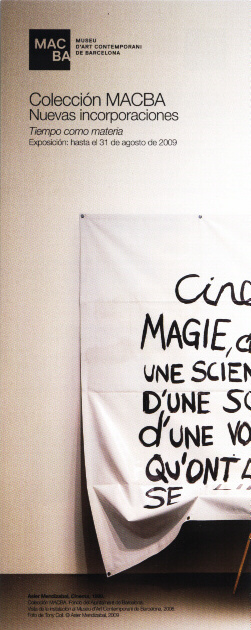 MAC
BA
MUSEU
D'ART CONTEMPORANI
DE BARCELONA
Colección MACBA
Nuevas incorporaciones
Tiempo como materia
Exposición: hasta el 31 de agosto de 2009
Ciné
MAGIE,
UNE SCIEN
D'UNE SC
d'UNE VO
QU'ONT
SE
Asier Mendizabal, Cinema, 1999
Colección MACBA. Fondo del Ajuntament de Barcelona.
Vista de la instalación al Museu d'Art Contemporani de Barcelona, 2008
Foto de Tony Coll. © Asier Mendizabal, 2009